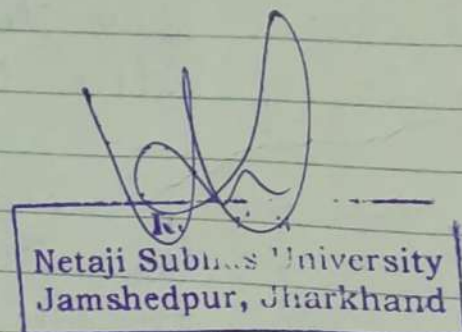 Netaji Subhas University
Jamshedpur, Jharkhand